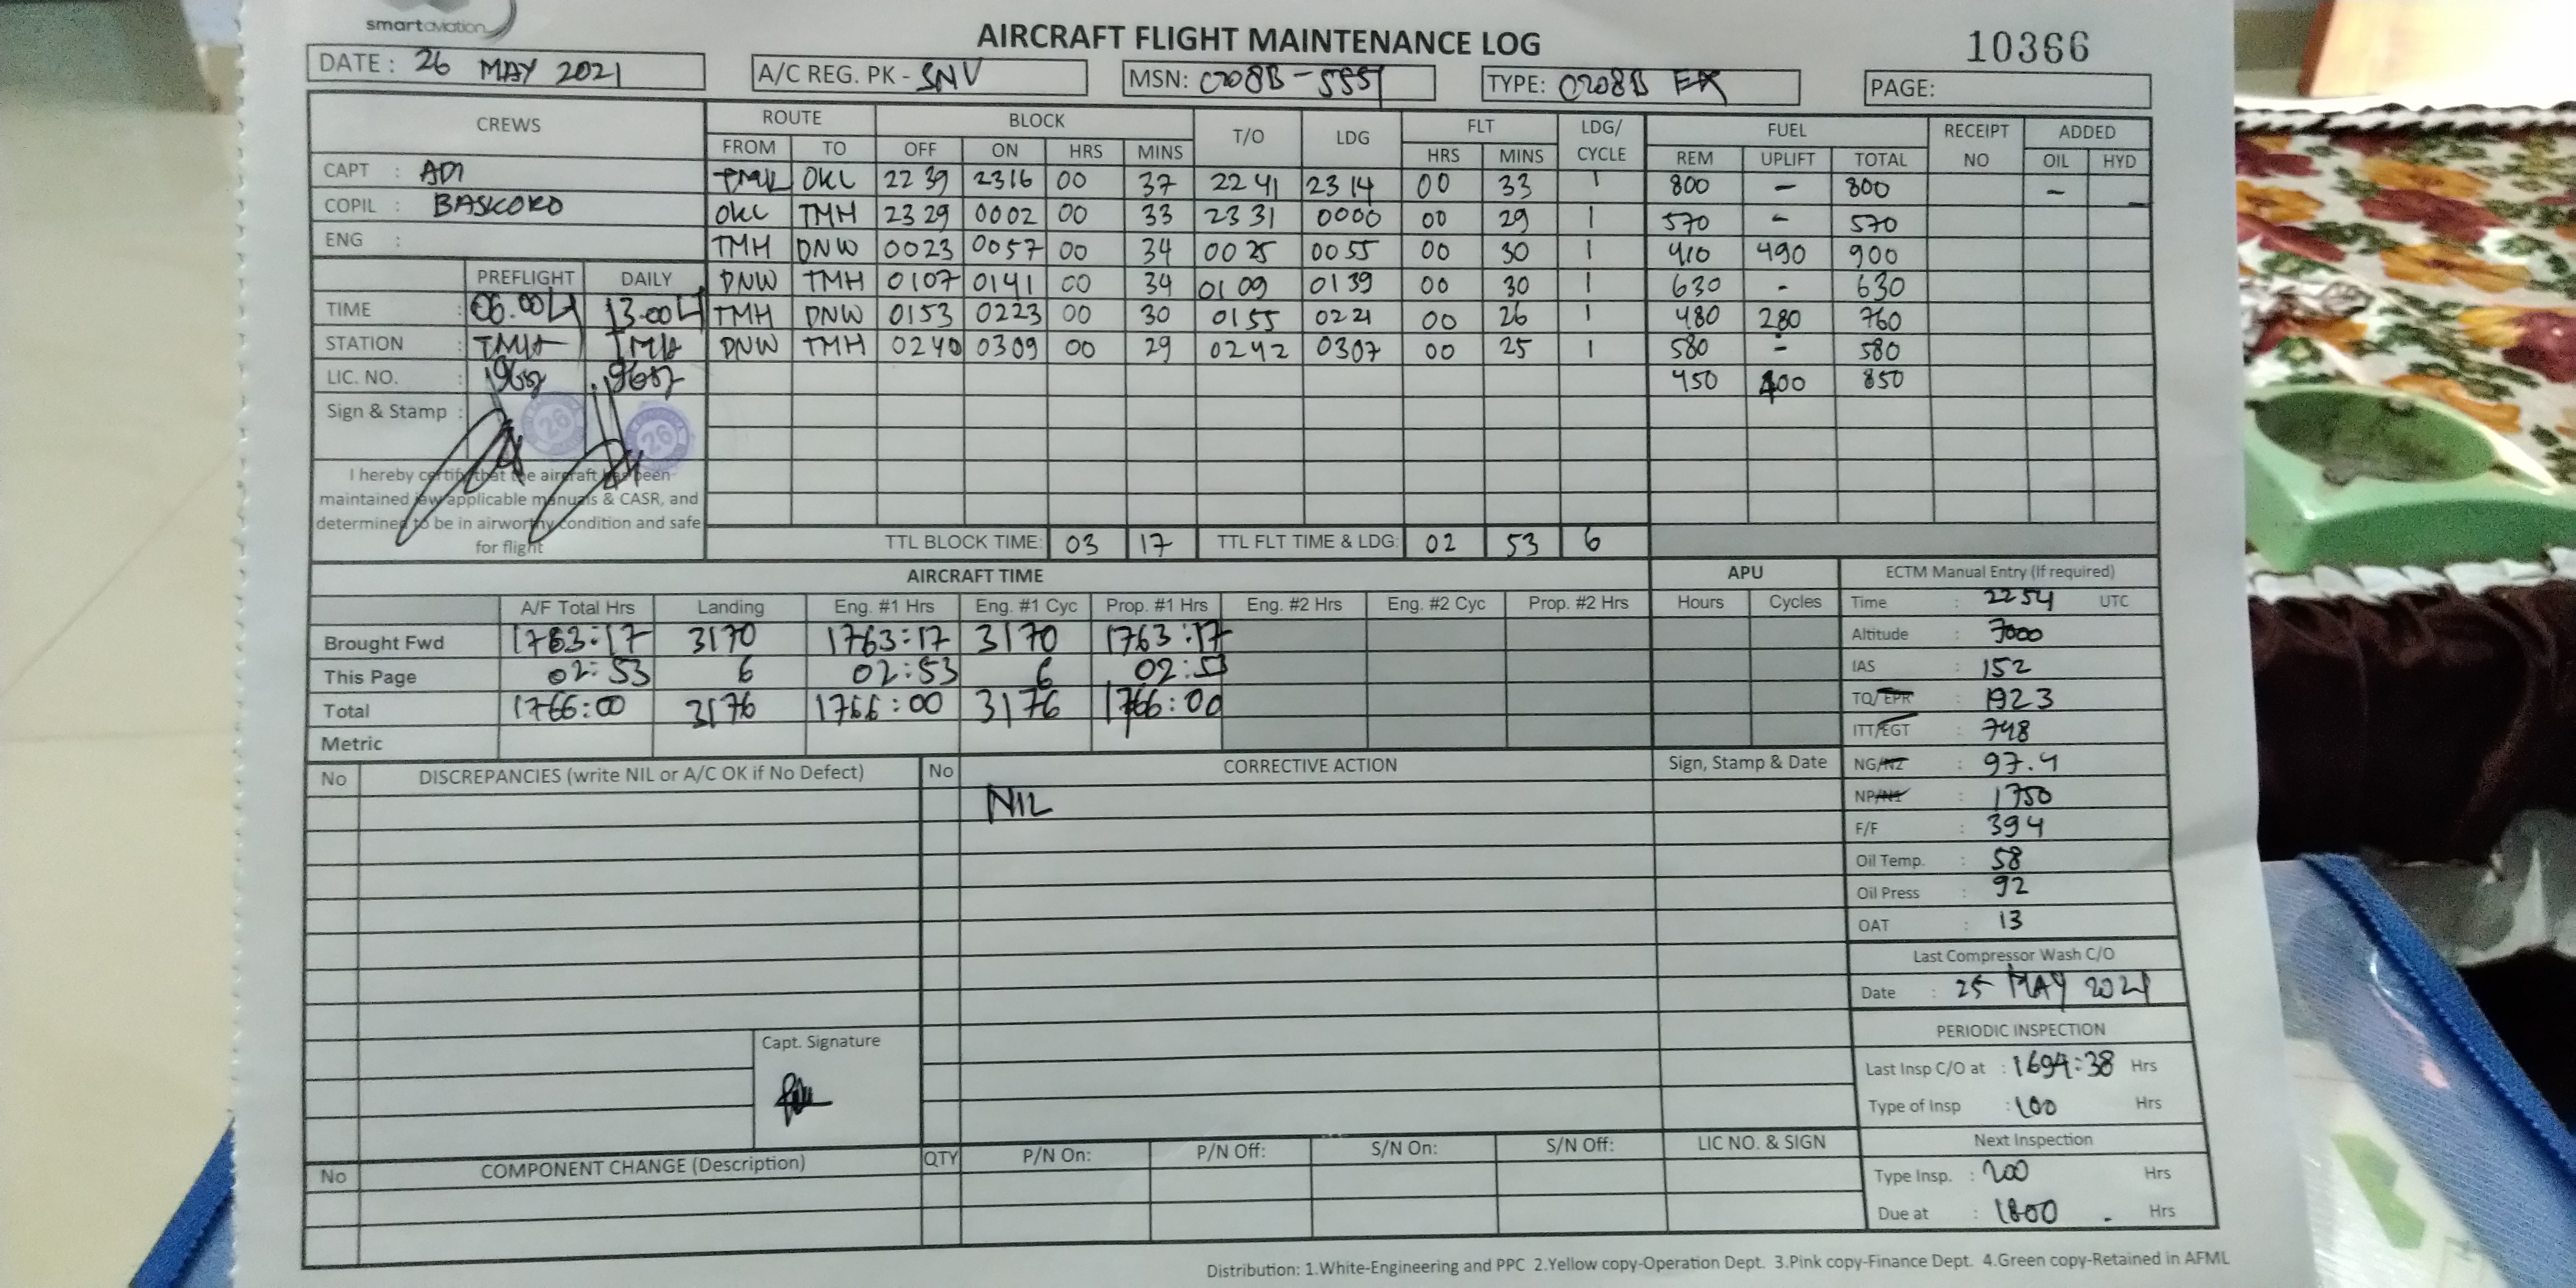 smartaviation
AIRCRAFT FLIGHT MAINTENANCE LOG
10366
DATE : 26 MAY 2021
A/C REG. PK - SNV
MSN: C208B-5551
TYPE: C208B EX
PAGE:
CREWS ROUTE BLOCK T/O LDG FLT LDG/ CYCLE FUEL RECEIPT NO ADDED
FROM TO OFF ON HRS MINS HRS MINS REM UPLIFT TOTAL OIL HYD
CAPT : ADI
COPIL : BASKORO
ENG :
OKL 22 39 2316 00 37 22 41 23 14 00 33 1 800 - 800 -
OKL TMH 23 29 0002 00 33 23 31 0000 00 29 1 570 - 570
TMH DNW 0023 0057 00 34 00 25 00 55 00 30 1 410 490 900
DNW TMH 0107 0141 00 34 01 09 01 39 00 30 1 630 - 630
TMH DNW 0153 0223 00 30 01 55 02 21 00 26 1 480 280 760
DNW TMH 0240 0309 00 29 02 42 0307 00 25 1 580 - 580
450 400 850
PREFLIGHT DAILY
TIME : 06.00 LT 13.00 LT
STATION : TMH TMH
LIC. NO. :
Sign & Stamp :
26 26
I hereby certify that the aircraft has been
maintained iaw applicable manuals & CASR, and
determined to be in airworthy condition and safe
for flight
TTL BLOCK TIME: 03 17 TTL FLT TIME & LDG: 02 53 6
AIRCRAFT TIME APU
A/F Total Hrs Landing Eng. #1 Hrs Eng. #1 Cyc Prop. #1 Hrs Eng. #2 Hrs Eng. #2 Cyc Prop. #2 Hrs Hours Cycles
Brought Fwd 1763:17 3170 1763:17 3170 1763:17
This Page 02:53 6 02:53 6 02:53
Total 1766:00 3176 1766:00 3176 1766:00
Metric
ECTM Manual Entry (If required)
Time : 2254 UTC
Altitude : 7000
IAS : 152
TQ/EPR : 1923
ITT/EGT : 748
NG/N2 : 97.4
NP/N1 : 1750
F/F : 394
Oil Temp. : 58
Oil Press : 92
OAT : 13
Last Compressor Wash C/O
Date : 25 MAY 2021
PERIODIC INSPECTION
Last Insp C/O at : 1694:38 Hrs
Type of Insp : 100 Hrs
Next Inspection
Type Insp. : 200 Hrs
Due at : 1800 Hrs
No DISCREPANCIES (write NIL or A/C OK if No Defect) No CORRECTIVE ACTION Sign, Stamp & Date
NIL
Capt. Signature
No COMPONENT CHANGE (Description) QTY P/N On: P/N Off: S/N On: S/N Off: LIC NO. & SIGN
Distribution: 1.White-Engineering and PPC 2.Yellow copy-Operation Dept. 3.Pink copy-Finance Dept. 4.Green copy-Retained in AFML